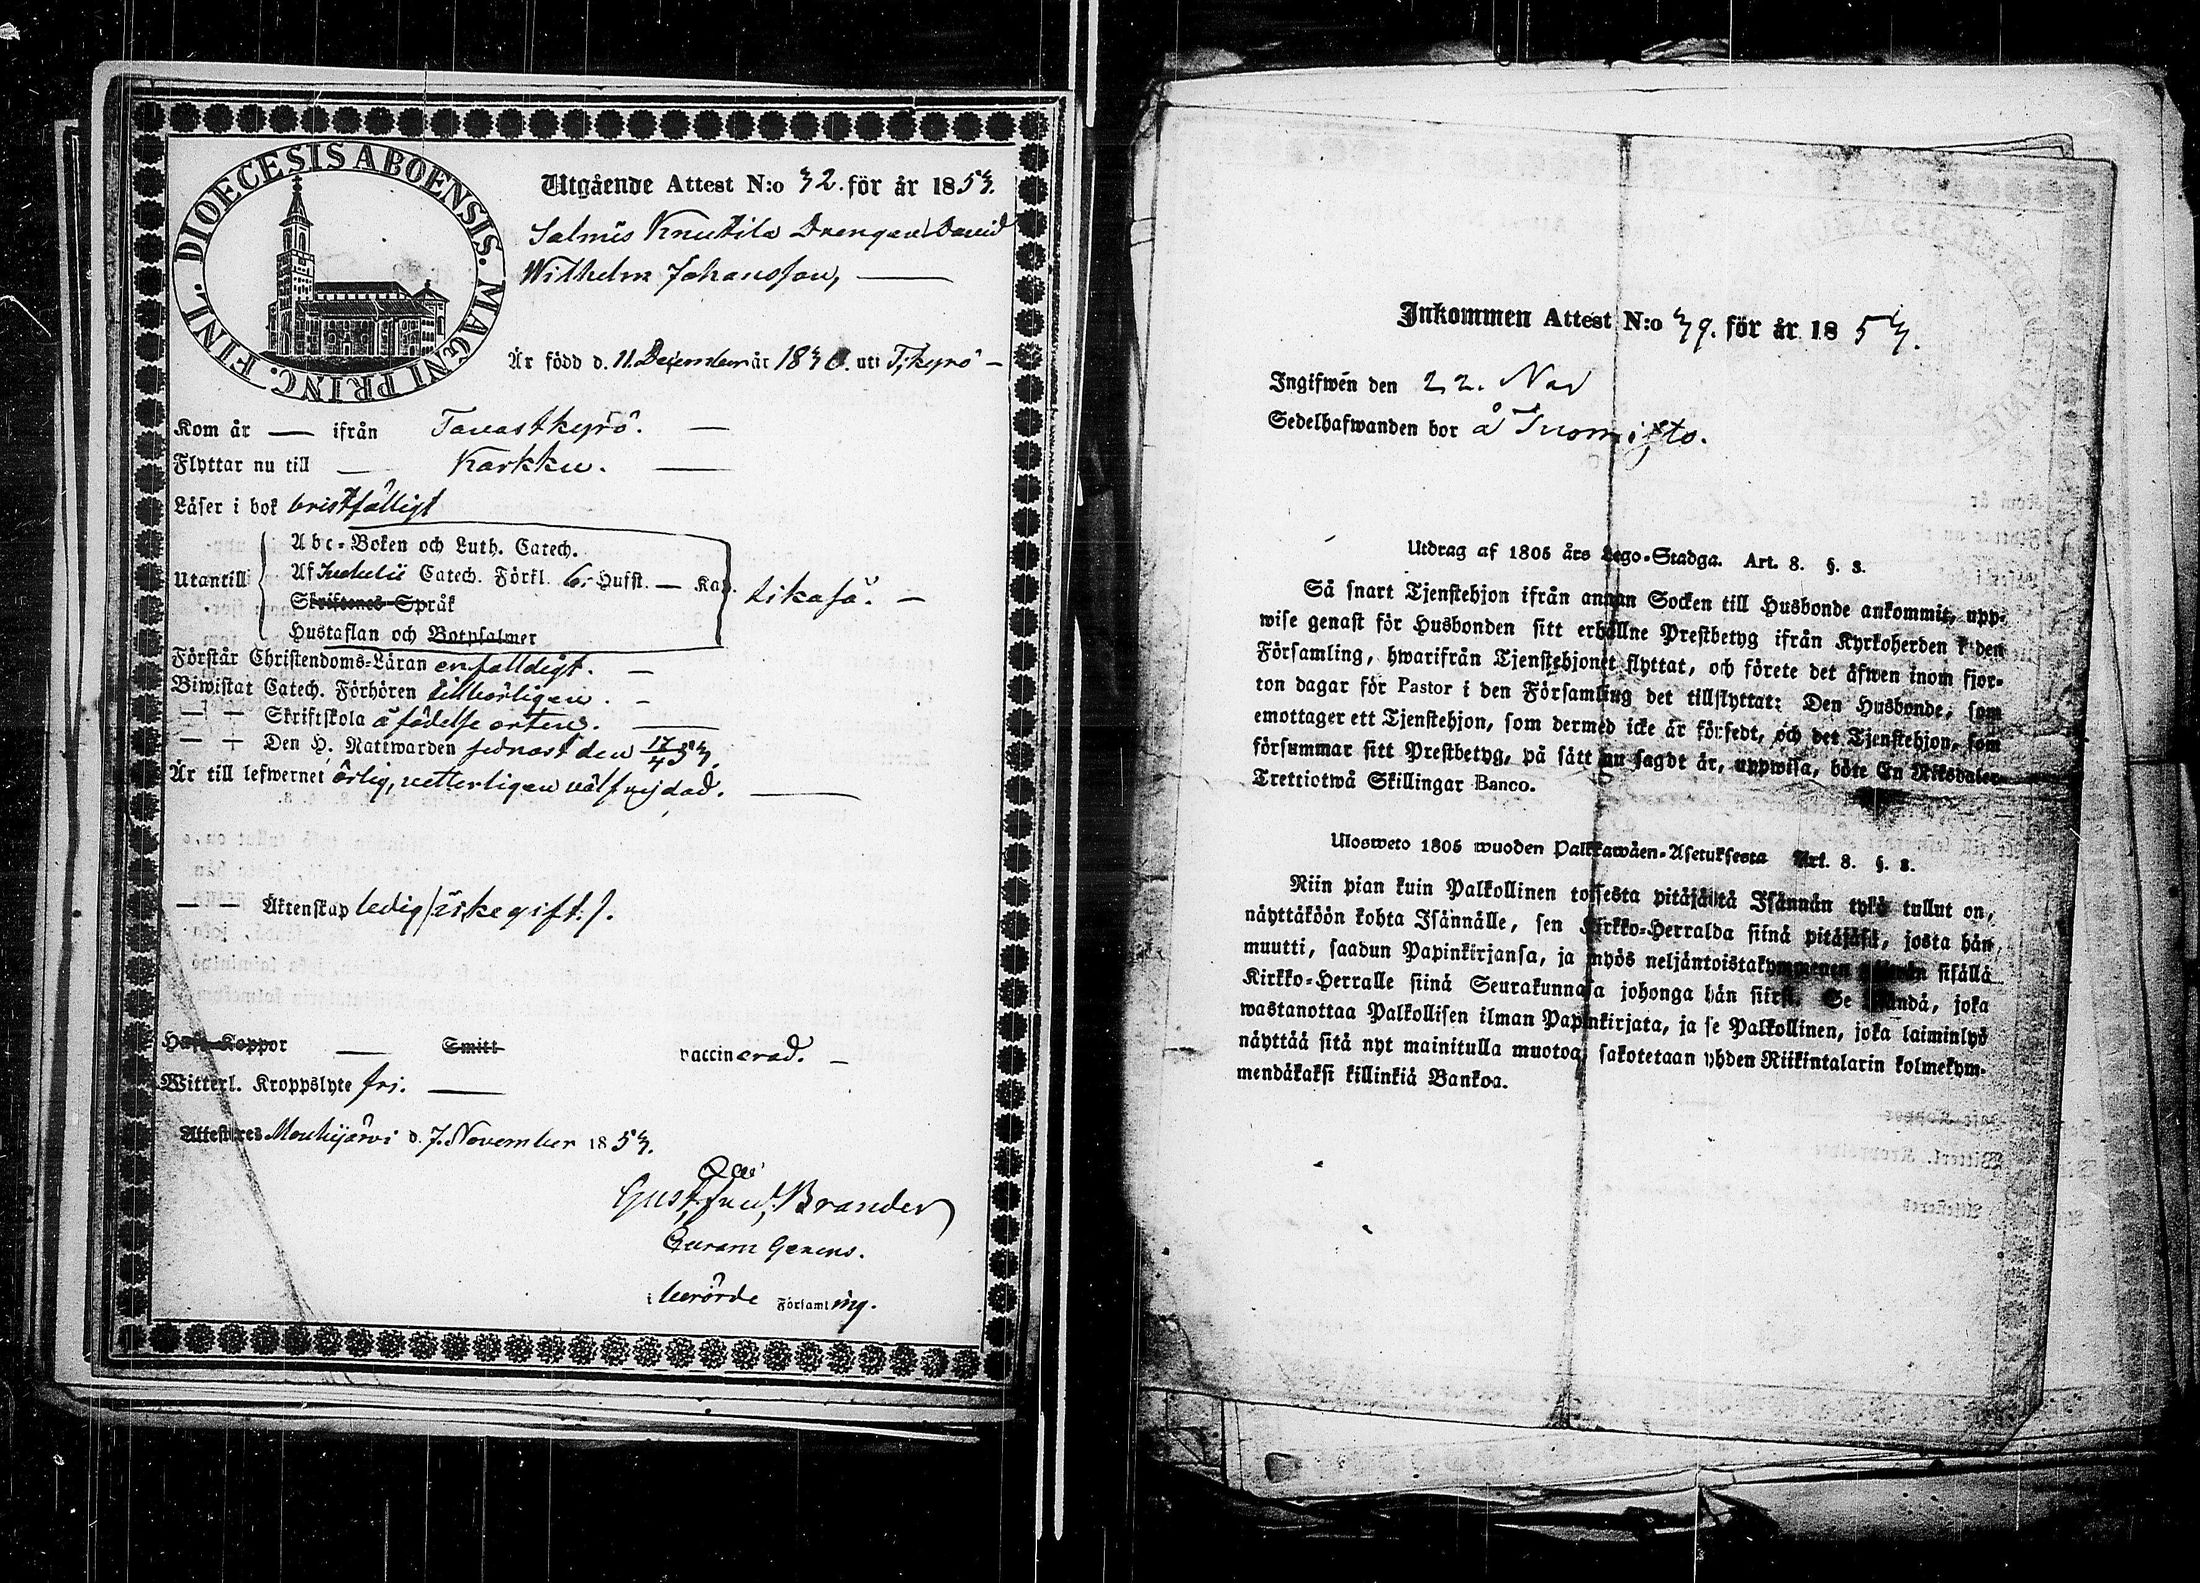 DIOECESIS ABOENSIS. MAGNI PRINC. FINL.
Utgående Attest N:o 32. för år 1853.
Salmis Knuutila Drengen David
Wilhelm Johansson,
Är född d. 11 December år 1830. uti T;kyrö
Kom år — ifrån Tavastkyrö.
Flyttar nu till — Karkku.
Läser i bok bristfälligt
Abc-Boken och Luth. Catech.
Utantill Af Catech. Förkl. 6. Hufst. — Kap. likaså.
Skriftenes Språk
Hustaflan och Botpsalmer
Förstår Christendoms-Läran enfaldigt.
Biwistat Catech. Förhören tillbörligen.
— — Skriftskola å födelse orten.
— — Den H. Nattwarden sednast den 17/4 53.
Är till lefwernet ärlig, vetterligen välfrejdad.
— — Äktenskap ledig /:icke gift:/.
Haft Koppor — Smitt vaccinerad.
Witterl. Kroppslyte fri.
Attesteres Mouhijärvi d. 7. November 1853.
Gust. Brander
Curam Gerens.
i berörde Församling.
Inkommen Attest N:o 39. för år 1853.
Ingifwen den 22. Nov
Sedelhafwanden bor å Tuomisto.
Utdrag af 1805 års Lego-Stadga. Art. 8. §. 3.
Så snart Tjenstehjon ifrån annan Socken till Husbonde ankommit, upp-
wise genast för Husbonden sitt erhållne Prestbetyg ifrån Kyrkoherden i den
Församling, hwarifrån Tjenstehjonet flyttat, och förete det äfwen inom fjor-
ton dagar för Pastor i den Församling det tillflyttat: Den Husbonde, som
emottager ett Tjenstehjon, som dermed icke är försedt, och det Tjenstehjon, som
försummar sitt Prestbetyg, på sätt nu sagdt är, uppwisa, böte En Riksdaler
Trettiotwå Skillingar Banco.
Ulosweto 1805 wuoden Palkkawäen-Asetuksesta Art. 8. §. 3.
Niin pian kuin Palkollinen toisesta pitäjästä Isännän tykö tullut on,
näyttäköön kohta Isännälle, sen Kirkko-Herralda siinä pitäjäsä, josta hän
muutti, saadun Papinkirjansa, ja myös neljäntoistakymmenen päiwän sisällä
Kirkko-Herralle siinä Seurakunnasa johonga hän siirsi. Se Isändä, joka
wastanottaa Palkollisen ilman Papinkirjata, ja se Palkollinen, joka laiminlyö
näyttää sitä nyt mainitulla muotoa, sakotetaan yhden Riikintalarin kolmekym-
mendäkaksi killinkiä Bankoa.